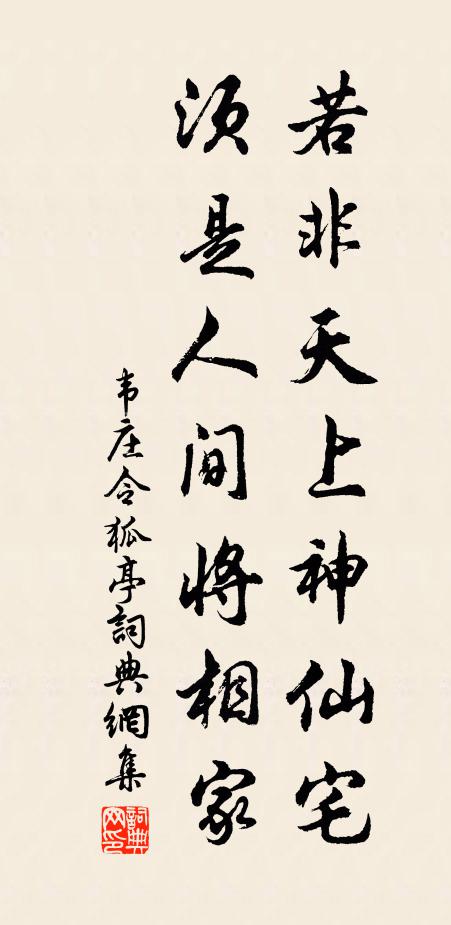 若非天上神仙宅
须是人间将相家
韦庄令狐亭詞典網集
詞典网印